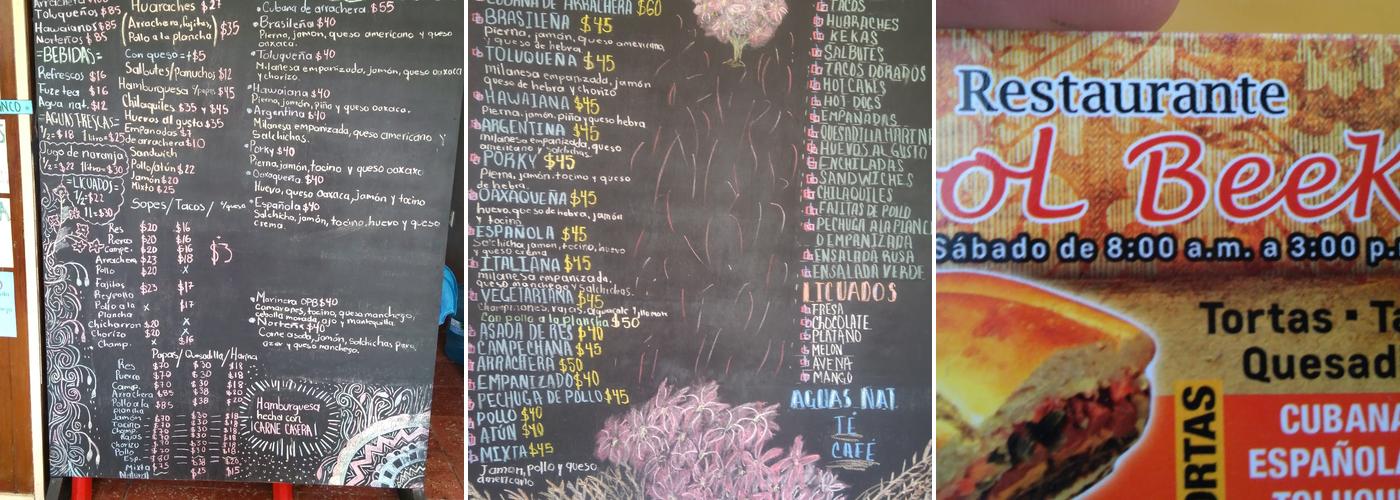 Toluqueños $85
Hawaianos $85
Norteños $85
=BEBIDAS=
Refrescos $16
Fuze tea $16
Agua nat. $12
=AGUAS FRESCAS=
1/2=$18 1 litro=$25
Jugo de naranja
1/2=$22 1 litro=$30
=LICUADOS=
1/2=$22
1l=$30
Huaraches $27
Arrachera, fajitas,
Pollo a la plancha $35
Con queso=+$5
Salbutes/panuchos $12
Hamburguesa $45
Chilaquiles $35 y $45
Huevos al gusto $35
Empanadas $7
de arrachera $10
Sandwich
Pollo/atún $22
Jamón $20
Mixto $25
Sopes/Tacos/
Res $20 $16
Puerco $20 $16
Campe. $20 $16
Arrachera $23 $18
Pollo $20 x
Fajitas $23 $17
Reypollo
Pollo a la x $17
Plancha
Chicharron $20 x
Chorizo $20 x
Champ. x $16
$3
Papas/Quesadilla/Harina
Res $70 $30 $18
Puerco $70 $30 $18
Camp. $70 $30 $18
Arrachera $85 $38
Pollo a la $85 $38
plancha
Jamón $70 $30 $18
Tocino
Champ.
Rajas
Chorizo
Pollo
Mixta
Natural
Hamburguesa
hecha con
CARNE CASERA!
Cubana de arrachera $55
Brasileña $40
Pierna, jamón, queso americano y queso
oaxaca.
Toluqueña $40
Milanesa empanizada, jamón, queso oaxaca
y chorizo.
Hawaiana $40
Pierna, jamón, piña y queso oaxaca.
Argentina $40
Milanesa empanizada, queso americano y
Salchichas.
Porky $40
Pierna, jamón, tocino y queso oaxaca
Oaxaqueña $40
Huevo, queso Oaxaca, jamón y tocino
Española $40
Salchicha, jamón, tocino, huevo y queso
crema.
Marinera $40
Camarones, tocino, queso manchego,
cebolla morada, ajo y mantequilla.
Norteña $40
Carne asada, jamón, salchichas para
asar y queso manchego.
CUBANA DE ARRACHERA $60
BRASILEÑA $45
Pierna, jamón, queso americano
y queso de hebra.
TOLUQUEÑA $45
milanesa empanizada, jamón
queso de hebra y chorizo
HAWAIANA $45
Pierna, jamón, piña y queso hebra
ARGENTINA $45
milanesa empanizada, queso
americano y salchichas.
PORKY $45
Pierna, jamón, tocino y queso
de hebra.
OAXAQUEÑA $45
huevo, queso de hebra, jamón
y tocino
ESPAÑOLA $45
Salchicha, jamon, tocino, huevo
y queso crema
ITALIANA $45
milanesa empanizada,
queso manchego y salchichas.
VEGETARIANA $45
Champiñones, rajas, aguacate
con pollo a la plancha $50
ASADA DE RES $40
CAMPECHANA $45
ARRACHERA $50
EMPANIZADO $40
PECHUGA DE POLLO $45
POLLO $40
ATÚN $40
MIXTA $45
Jamon, pollo y queso
americano
TACOS
HUARACHES
KEKAS
SALBUTES
TACOS DORADOS
HOT CAKES
HOT DOGS
EMPANADAS
QUESADILLA HARINA
HUEVOS AL GUSTO
ENCHILADAS
SANDWICHES
CHILAQUILES
FAJITAS DE POLLO
PECHUGA A LA PLANC
O EMPANIZADA
ENSALADA RUSA
ENSALADA VERDE
LICUADOS
FRESA
CHOCOLATE
PLATANO
MELON
AVENA
MANGO
AGUAS NAT.
TÉ
CAFÉ
Restaurante
ol Beek
Sábado de 8:00 a.m. a 3:00 p.
Tortas ▪ Ta
Quesad
ORTAS
CUBANA
ESPAÑOLA